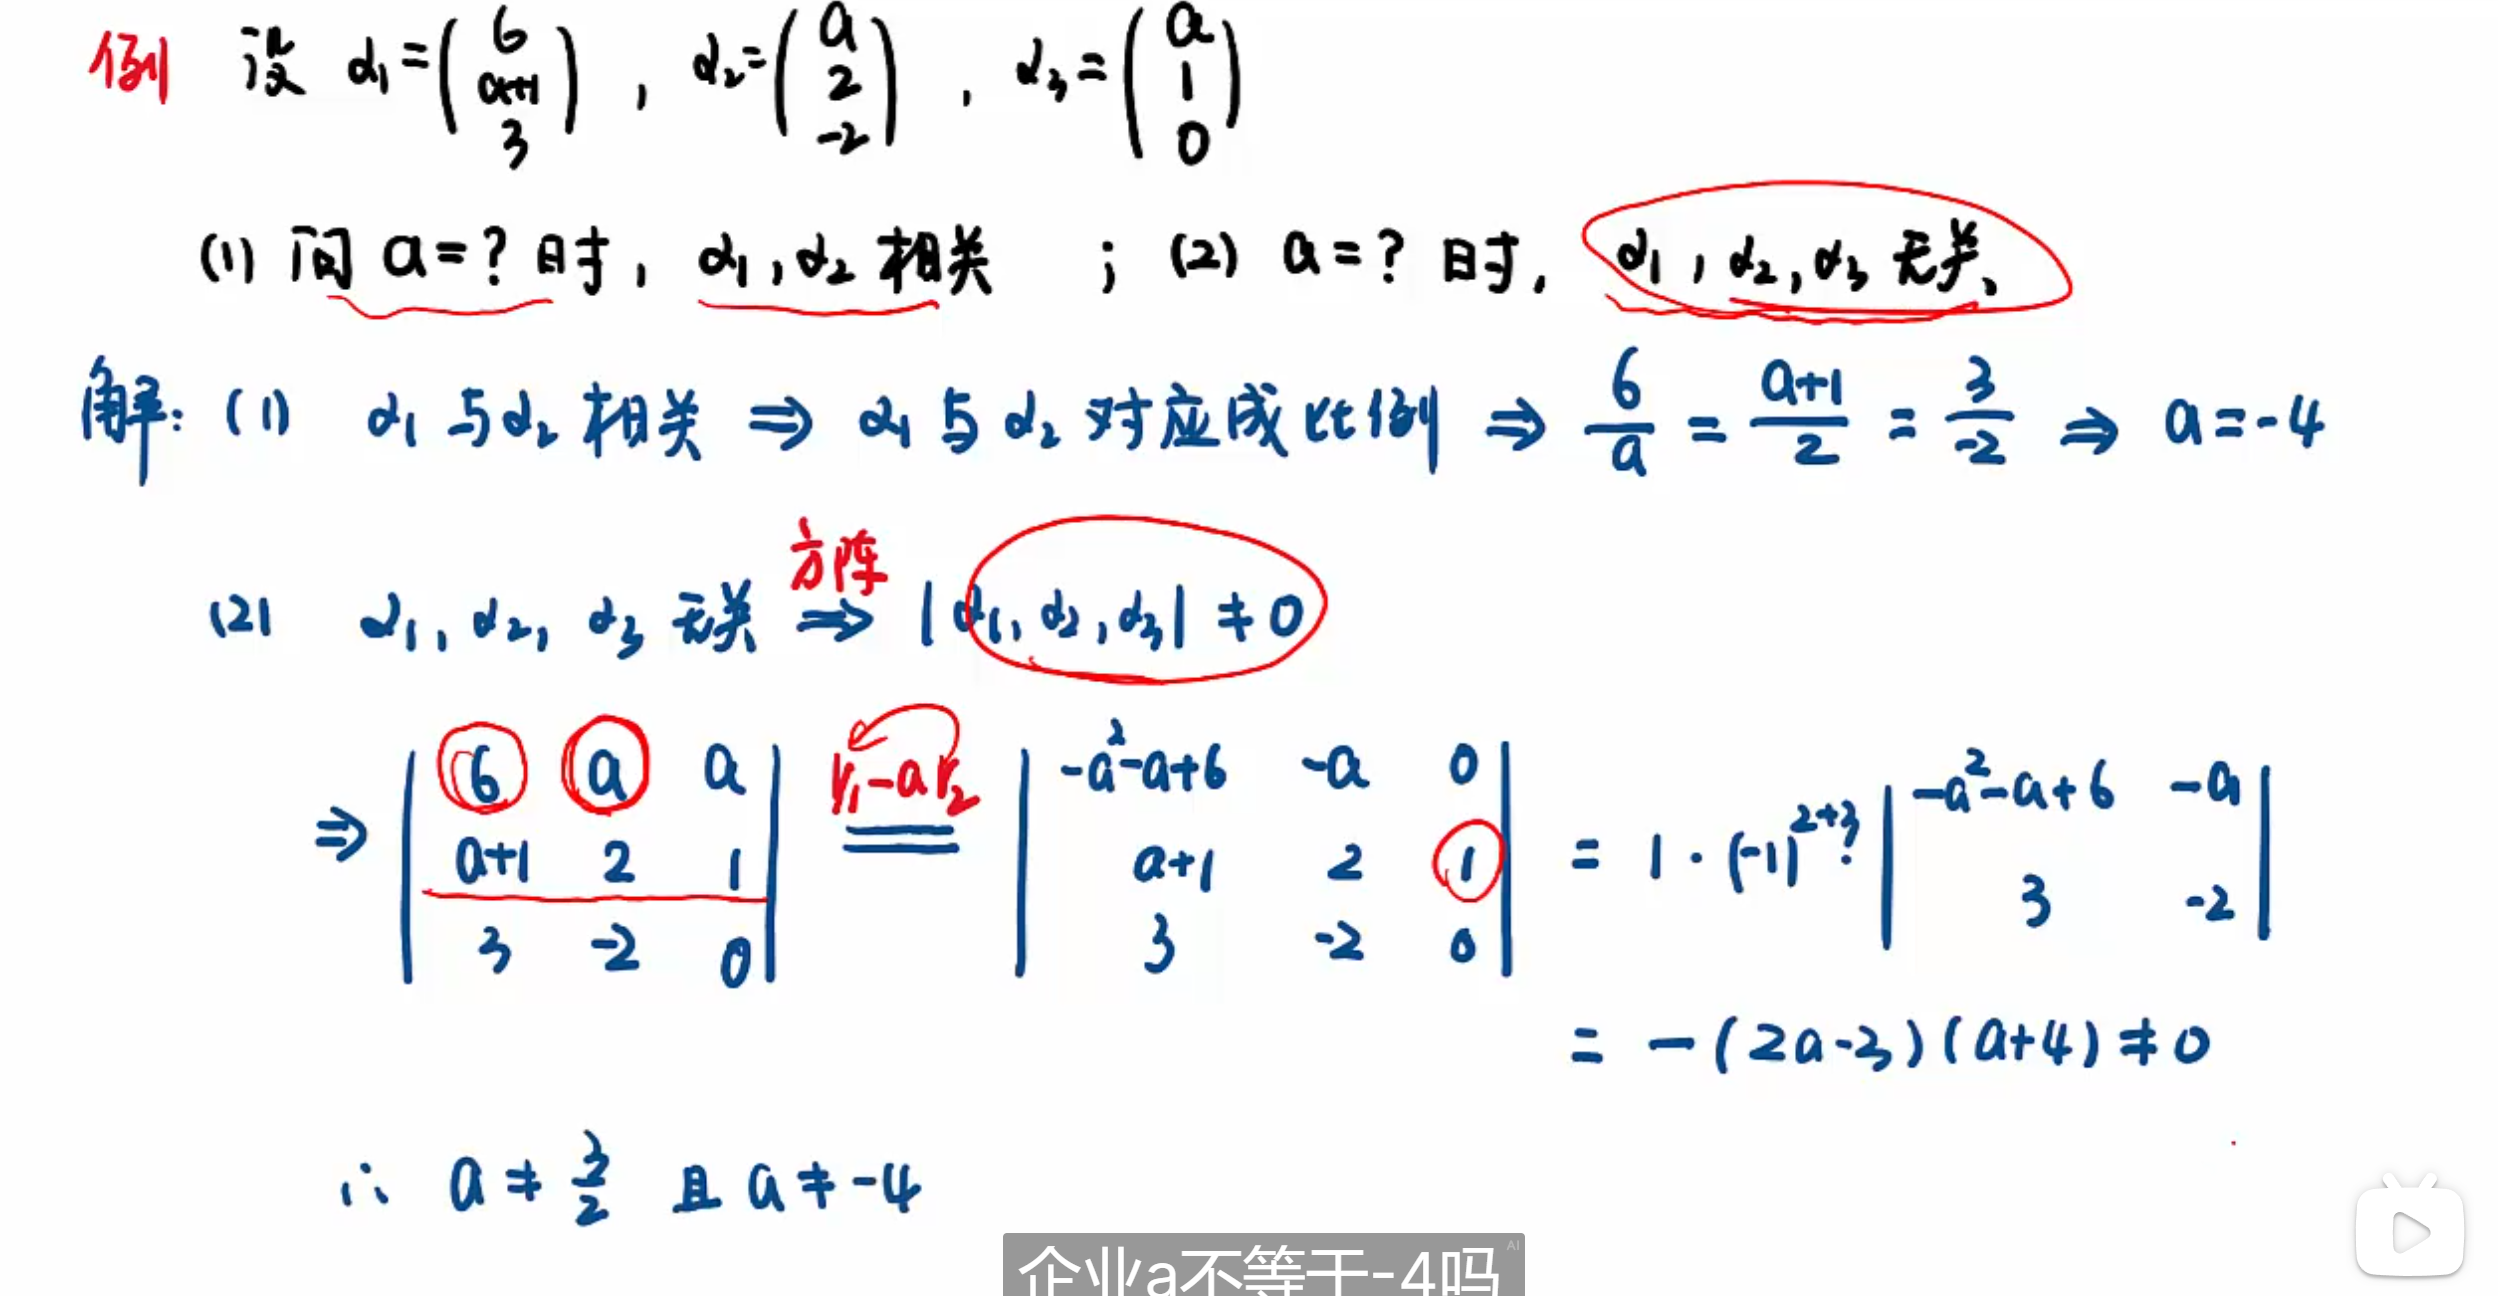 例 设 α₁=(6 a+1 3), α₂=(a 2 -2), α₃=(a 1 0)
(1) 问 a=? 时, α₁, α₂ 相关 ; (2) a=? 时, α₁, α₂, α₃ 无关、
解: (1) α₁ 与 α₂ 相关 ⇒ α₁ 与 α₂ 对应成比例 ⇒ 6/a = (a+1)/2 = 3/-2 ⇒ a=-4
方阵
(2) α₁, α₂, α₃ 无关 ⇒ |α₁, α₂, α₃| ≠ 0
⇒ |6 a a; a+1 2 1; 3 -2 0| r₁-ar₂ = |-a²-a+6 -a 0; a+1 2 1; 3 -2 0| = 1·(-1)²⁺³· |-a²-a+6 -a; 3 -2|
= -(2a-3)(a+4) ≠ 0
∴ a ≠ 3/2 且 a ≠ -4
企业a不等于-4吗
AI